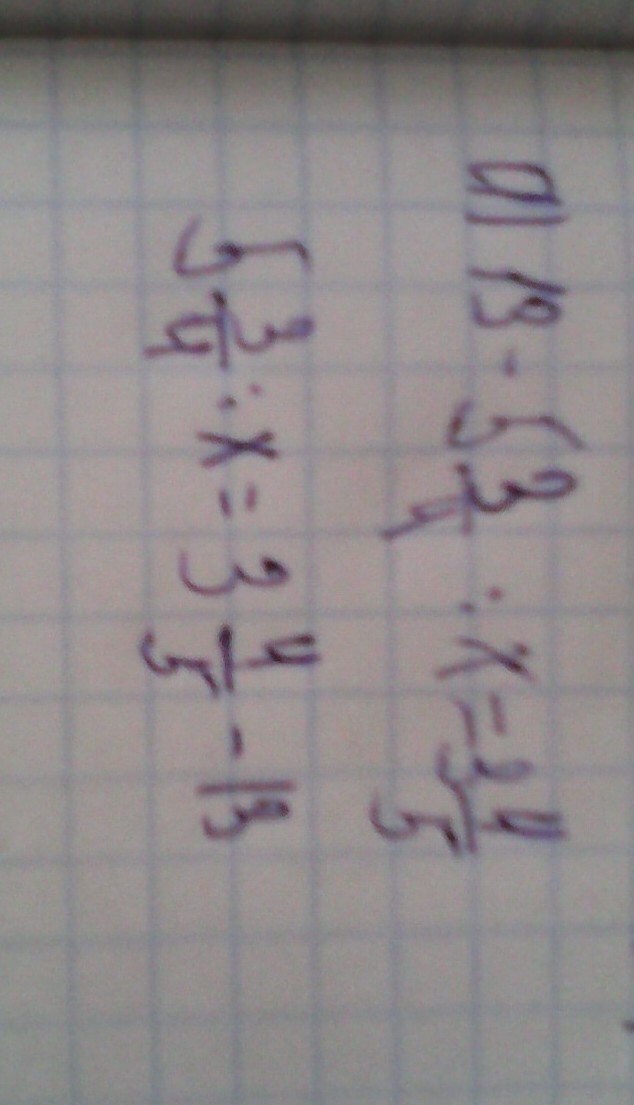 а) 19 - 5 3/4 : x = 3 4/5
5 3/4 : x = 3 4/5 - 19